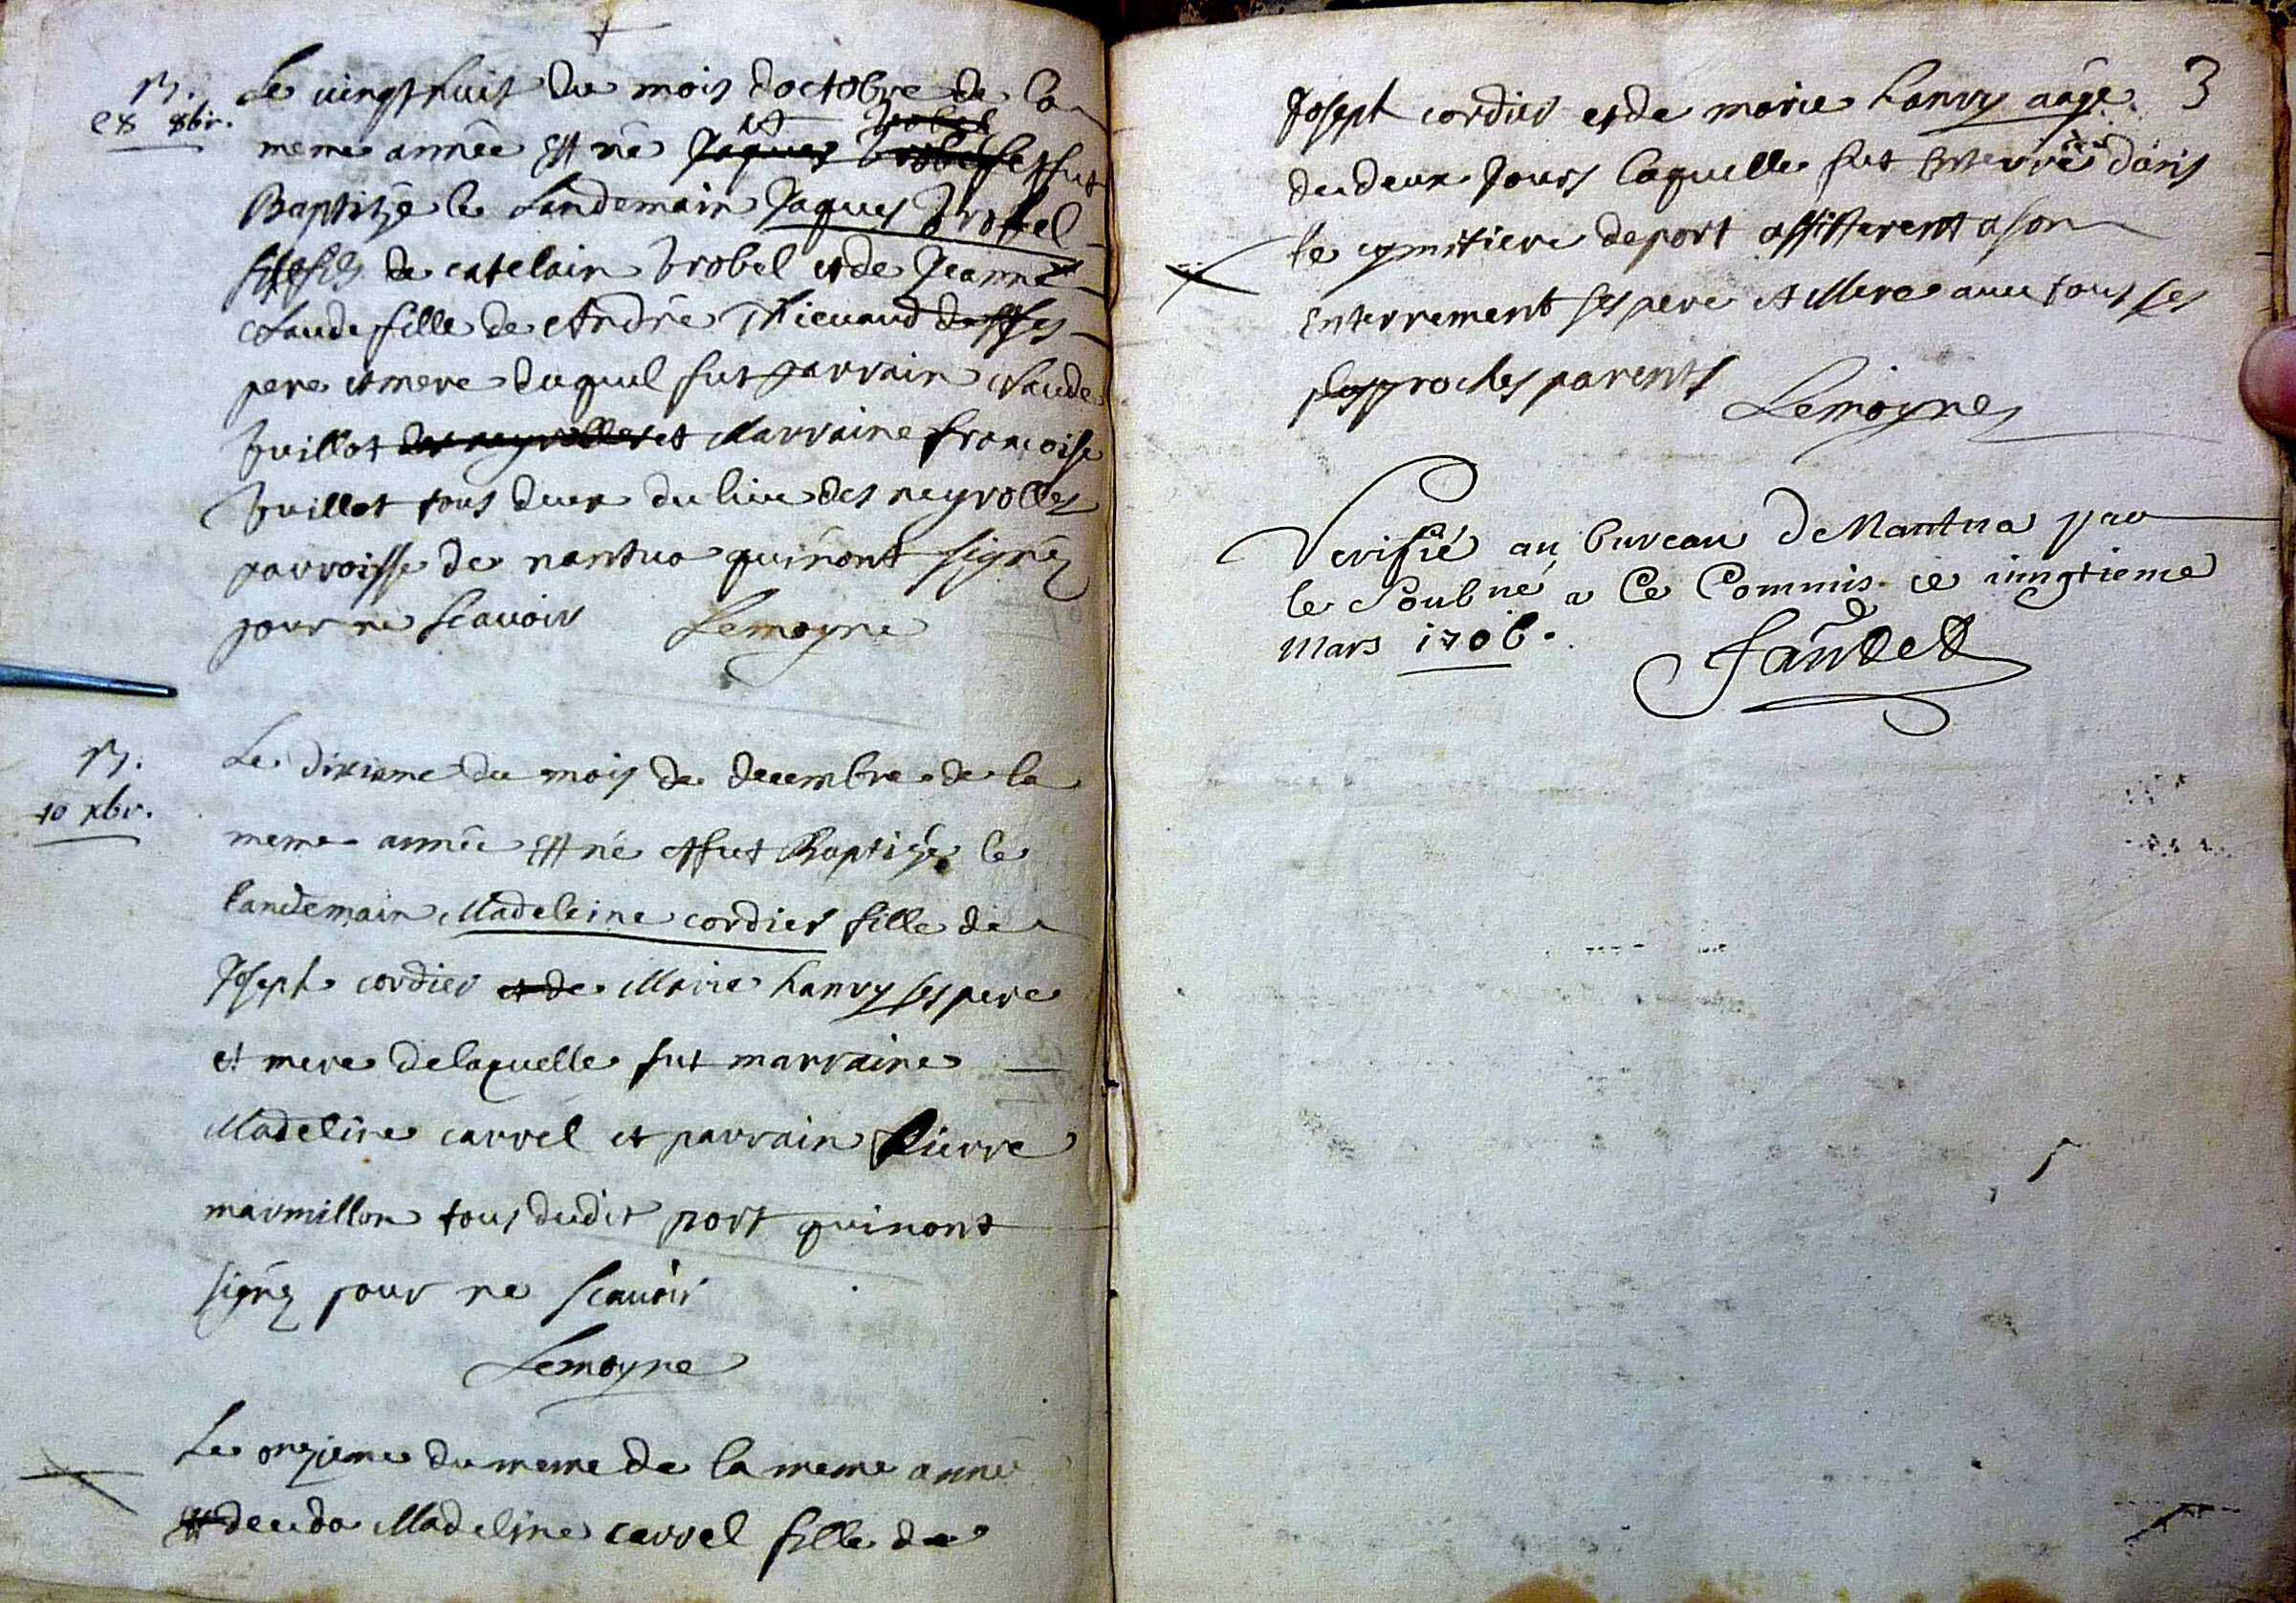 B.
28 8br.
Le vingt huit du mois doctobre de la
meme année Est né et fut
Baptizé le Landemain Jaques Brobel
fils de catelain brobel et de Jeanne
Claude fille de André Thievaud ses
pere et mere duquel fut parrain Claude
Juillot et Marraine francoise
Juillot tous deux du lieu des neyrolles
parroisse de nantua qui nont signéz
pour ne scavoir Lemoyne
B.
10 xbr.
Le dixieme du mois de decembre de la
meme année Est né et fut Baptizé le
landemain Madeleine cordier fille de
Joseph cordier et de Marie hanry ses pere
et mere de laquelle fut marraine
Madeline carrel et parrain Pierre
marmillon tous dudit port qui nont
signéz pour ne scavoir
Lemoyne
Le onzieme du meme de la meme anné
deceda Madeline carrel fille de
3
Joseph cordier et de marie hanry aagé
de deux Jours laquelle fut Enterré dans
le cymitiere de port assisterent a son
Enterrement ses pere et Mere avec tous ses
proches parents
Lemoyne
Verifié au bureau de Nantua par
le Soubné a Ce Commis ce vingtieme
Mars 1706.
Jantet